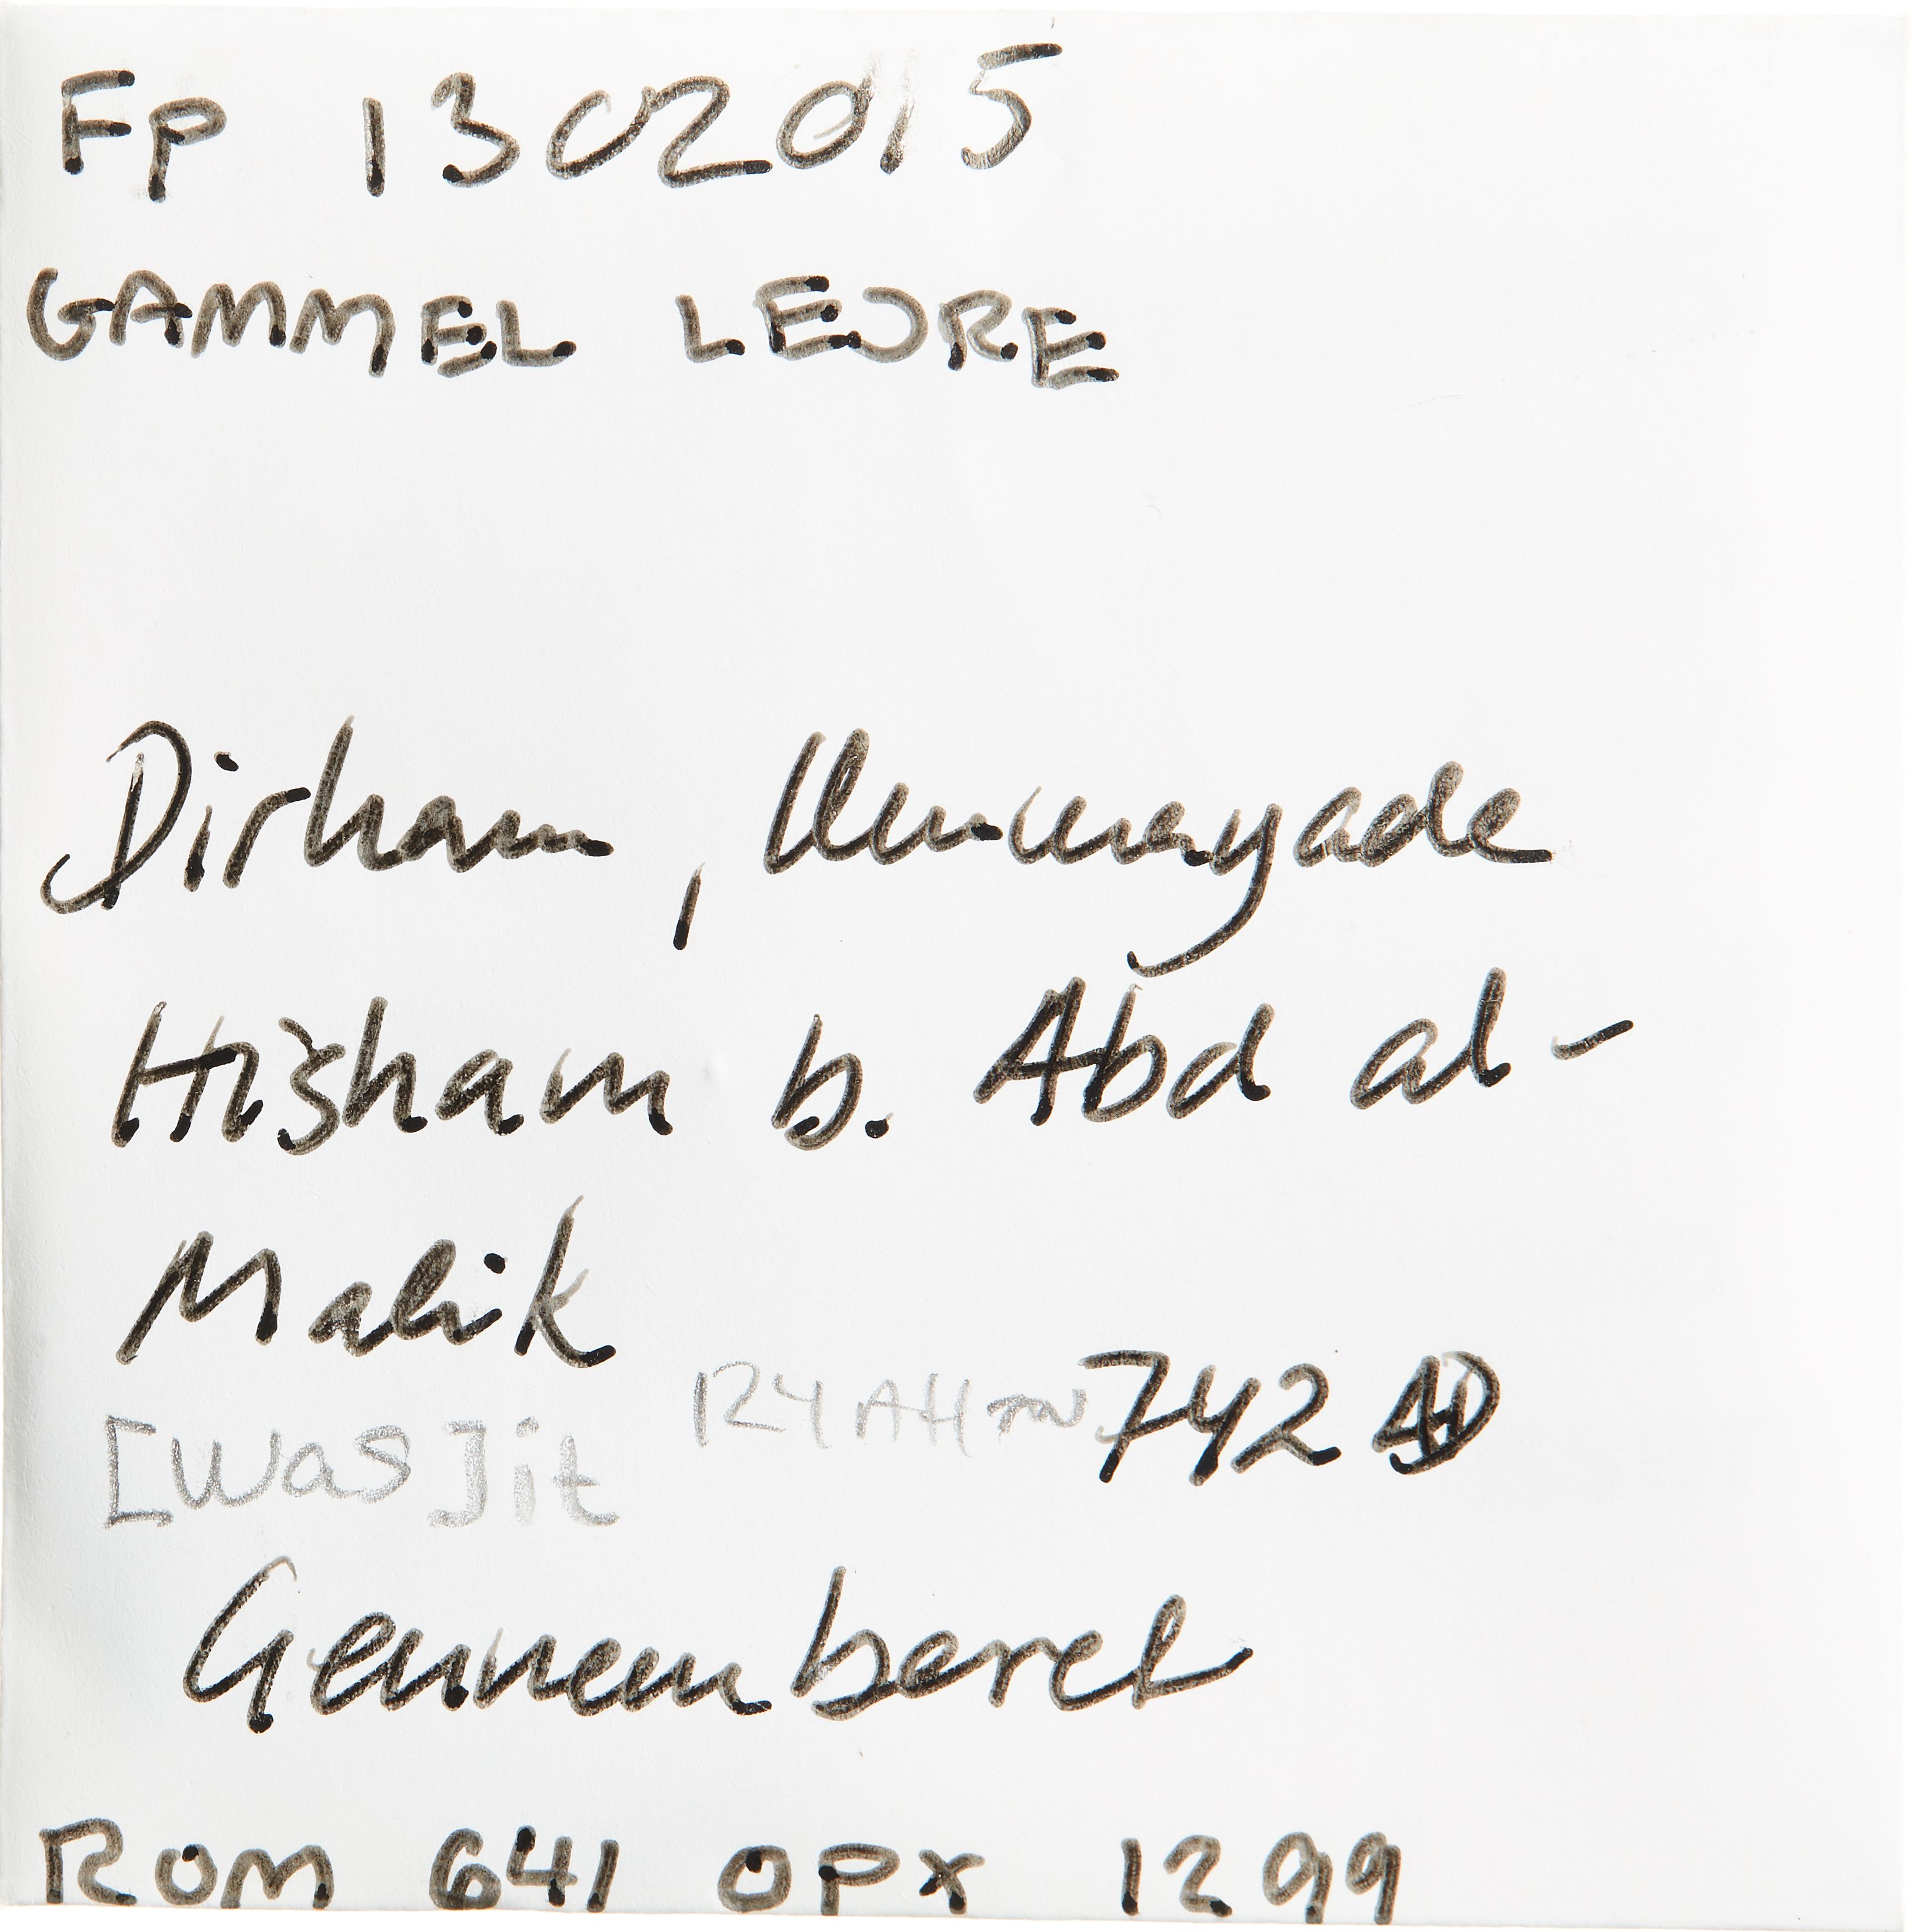 FP 1302015
GAMMEL LEJRE
Dirham, Ummayade
Hisham b. Abd al-
Malik
124 AH 742 AD
[Was]it
Gennemboret
ROM 641 OPX 1299